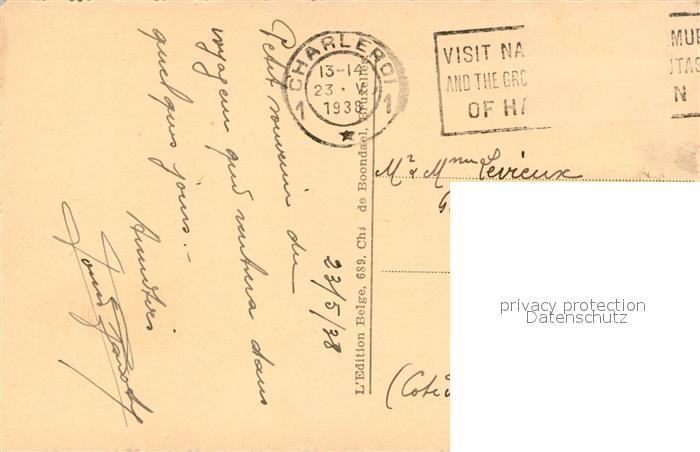 Petit souvenir du
voyageur qui rentrera dans
quelques jours.-
Amitiés
23/5/38
CHARLEROI
1 1
13-14
23 . V
1938
VISIT NA MUR
AND THE GRO TTAS
OF HA N
L'Edition Belge, 689, Ch de Boondael, Bruxelles
Mr & Mme Levieux
(Cote d
privacy protection
Datenschutz